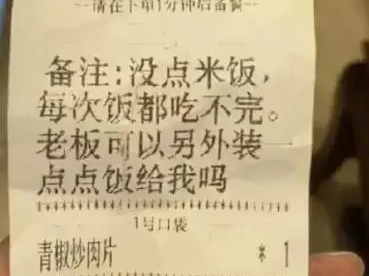 --请在下单1分钟后备装--
备注:没点米饭，
每次饭都吃不完。
老板可以另外装一
点点饭给我吗
1号口袋
青椒炒肉片 * 1